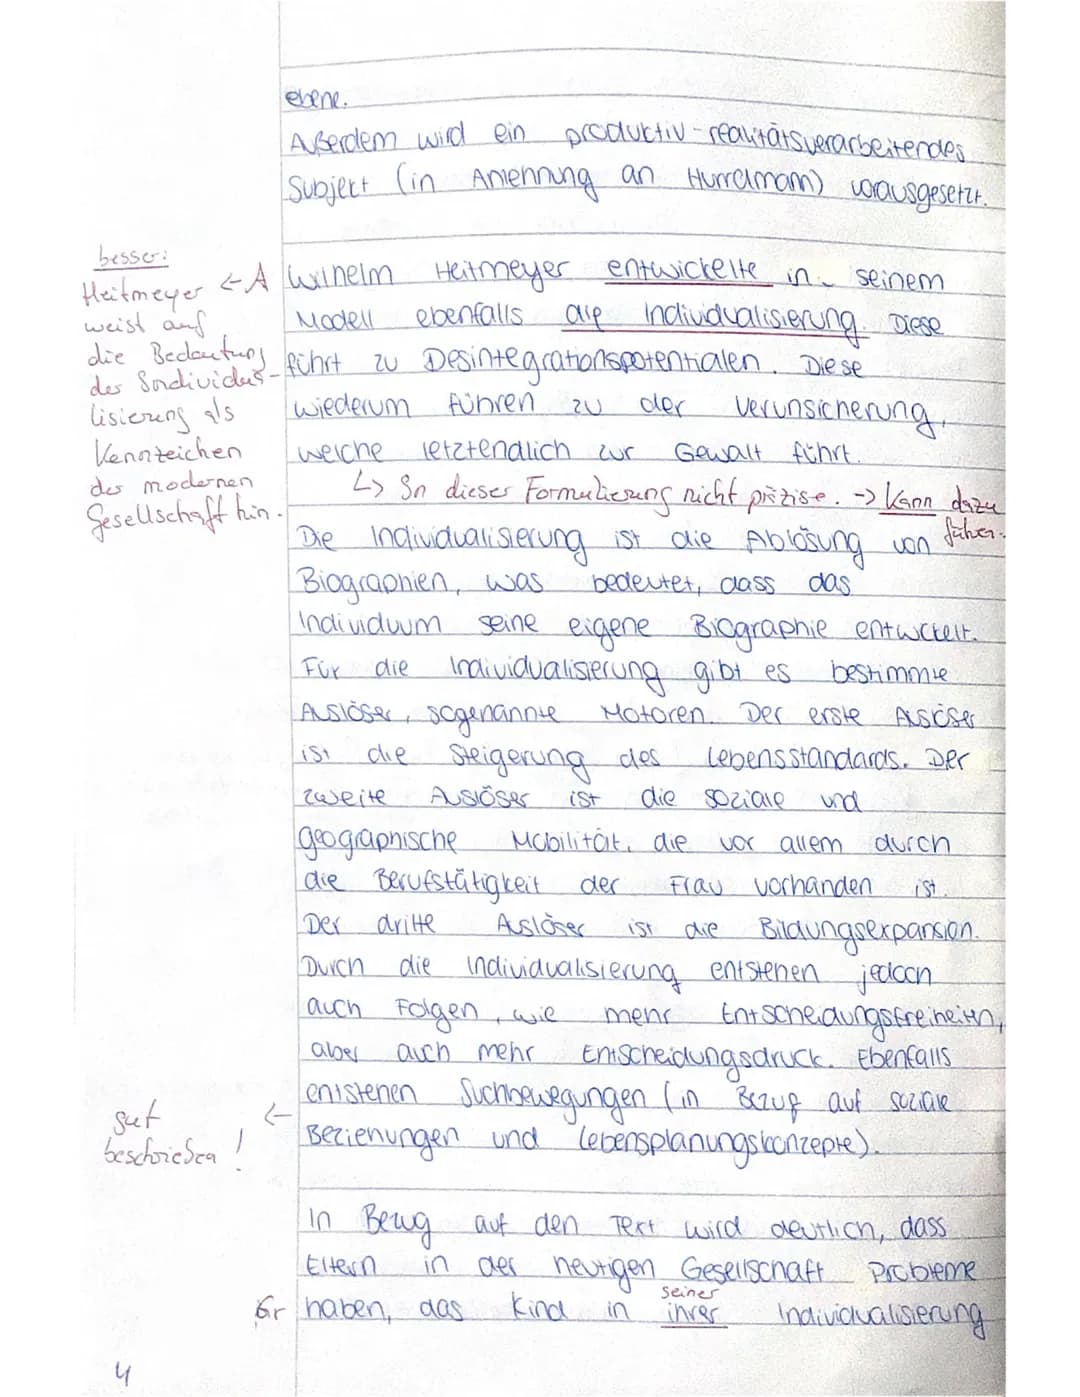 ebene.
Außerdem wird ein produktiv-realitätsverarbeitendes
Subjekt (in Anlehnung an Hurrelmann) vorausgesetzt.
besser:
Heitmeyer ← A
weist auf
die Bedeutung
der Individua-
lisierung als
Kennzeichen
der modernen
Gesellschaft hin.
Wilhelm Heitmeyer entwickelte in seinem
Modell ebenfalls die Individualisierung. Diese
führt zu Desintegrationspotentialen. Diese
wiederum führen zu der Verunsicherung,
welche letztendlich zur Gewalt führt.
↳ In dieser Formulierung nicht präzise. → Kann dazu
führen.
Die Individualisierung ist die Ablösung von
Biographien, was bedeutet, dass das
Individuum seine eigene Biographie entwickelt.
Für die Individualisierung gibt es bestimmte
Auslöser, sogenannte Motoren. Der erste Auslöser
ist die Steigerung des Lebensstandards. Der
zweite Auslöser ist die soziale und
geographische Mobilität, die vor allem durch
die Berufstätigkeit der Frau vorhanden ist.
Der dritte Auslöser ist die Bildungsexpansion.
Durch die Individualisierung entstehen jedoch
auch Folgen, wie mehr Entscheidungsfreiheiten,
aber auch mehr Entscheidungsdruck. Ebenfalls
entstehen Suchbewegungen (in Bezug auf soziale
Beziehungen und Lebensplanungskonzepte).
gut ←
beschrieben!
In Bezug auf den Text wird deutlich, dass
Eltern in der heutigen Gesellschaft Probleme
seiner
Gr haben, das Kind in ihrer Individualisierung
4